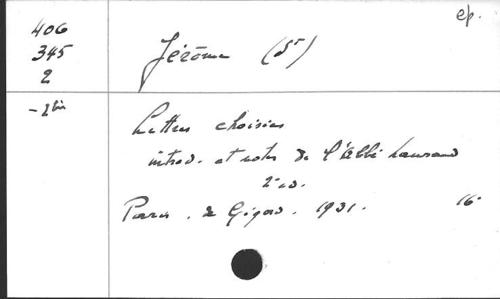 ep.
406
345
2
Jérôme (St)
- 2bis
Lettres choisies
introd. et notes de l'Abbé Laurand
2e éd.
Paris. de Gigord. 1931. 16°